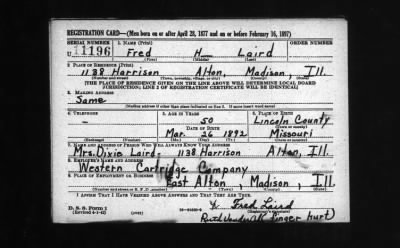 REGISTRATION CARD—(Men born on or after April 28, 1877 and on or before February 16, 1897)
SERIAL NUMBER 1. NAME (Print)
U 1196 Fred H Laird
2. PLACE OF RESIDENCE (Print)
1138 Harrison Alton, Madison, Ill.
[THE PLACE OF RESIDENCE GIVEN ON THE LINE ABOVE WILL DETERMINE LOCAL BOARD
JURISDICTION; LINE 2 OF REGISTRATION CERTIFICATE WILL BE IDENTICAL]
3. MAILING ADDRESS
Same
[Mailing address if other than place indicated on line 2. If same insert word same]
4. TELEPHONE 5. AGE IN YEARS 6. PLACE OF BIRTH
- 50 Lincoln County
DATE OF BIRTH
Mar. 26 1892 Missouri
7. NAME AND ADDRESS OF PERSON WHO WILL ALWAYS KNOW YOUR ADDRESS
Mrs. Dixie Laird, 1138 Harrison Alton, Ill.
8. EMPLOYER'S NAME AND ADDRESS
Western Cartridge Company
9. PLACE OF EMPLOYMENT OR BUSINESS
East Alton, Madison, Ill.
I AFFIRM THAT I HAVE VERIFIED ABOVE ANSWERS AND THAT THEY ARE TRUE.
D. S. S. Form 1
(Revised 4-1-42)
X Fred Laird
finger hurt)